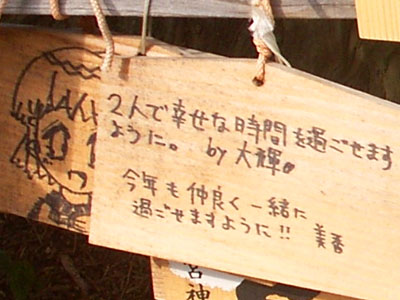 2人で幸せな時間を過ごせます
ように。 by 大輝。
今年も仲良く一緒に
過ごせますように!! 美香
宮神